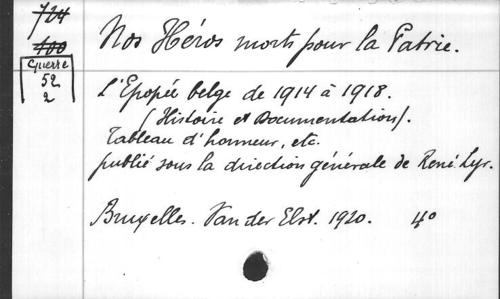 724
400
Guerre
52
2
Nos Héros morts pour la Patrie.
L'Epopée belge de 1914 à 1918.
(Histoire et Documentation).
Tableau d'honneur, etc.
publié sous la direction générale de René Lyr.
Bruxelles. Van der Elst. 1920. 4°